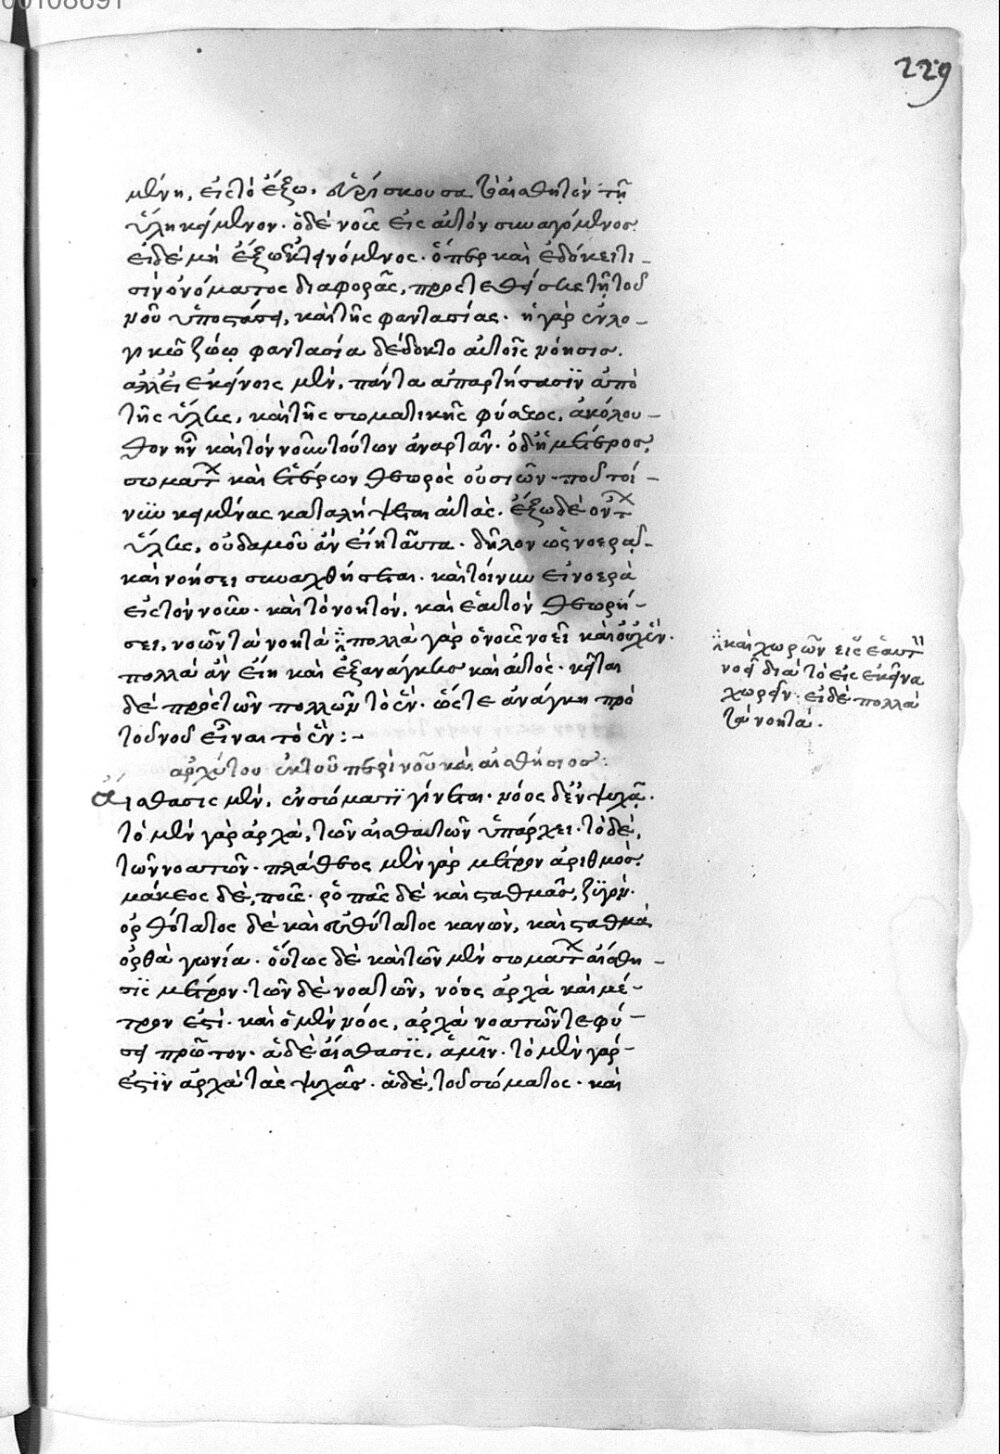 00108691
229
μένη, εἰς τὸ ἔξω. εὑρίσκουσα τὸ αἰσθητὸν τῇ
ὕλῃ κείμενον. ὁ δὲ νοῦς εἰς αὐτὸν συναγόμενος
εἰ δὲ μὴ ἔξω ἐκτεινόμενος. ὅπερ καὶ ἐδόκει τι-
σὶν ὀνόματος διαφορᾶς, προστεθείσης τῇ τοῦ
νοῦ ὑποστάσει, καὶ τῆς φαντασίας. ἡ γὰρ ἐν λο-
γικῷ ζώῳ φαντασία δέδοκτο αὐτοῖς νόησις.
ἀλλ' εἰ ἐκείνοις μὲν, πάντα ἀπαρτήσασιν ἀπὸ
τῆς ὕλης, καὶ τῆς σωματικῆς φύσεως, ἀκόλου-
θον ἦν καὶ τὸν νοῦν τούτων ἀναρτᾶν. ὁ δ' ἡμέτερος,
σωμάτων καὶ ἑτέρων θεωρὸς οὐσιῶν. ποῦ τοί-
νυν κειμένας καταλήψεται αὐτάς. ἔξω δὲ ὄντων
ὕλης, οὐδαμοῦ ἂν εἴη ταῦτα. δῆλον ὡς νοεραὶ-
καὶ νοήσει συναχθήσεται. καὶ τοίνυν εἰ νοερὰ
εἰς τὸν νοῦν. καὶ τὸ νοητὸν, καὶ ἑαυτὸν θεωρή-
σει, νοῶν τὰ νοητὰ πολλὰ γὰρ ὁ νοῦς νοεῖ καὶ οὐχ ἕν.
πολλὰ ἂν εἴη καὶ ἐξανάγκης καὶ αὐτός. κεῖται
δὲ πρὸ τῶν πολλῶν τὸ ἕν. ὥστε ἀνάγκη πρὸ
τοῦ νοῦ εἶναι τὸ ἕν :-
καὶ χωρῶν εἰς ἑαυτὸν
νοεῖ διὰ τὸ εἰς ἐκεῖνα
χωρεῖν. εἰ δὲ πολλὰ
τὰ νοητά.
ἀρχύτου ἐκ τοῦ περὶ νοῦ καὶ αἰσθήσιος:
Αἴσθασις μὲν, ἐν σώματι γίνεται. νόος δ' ἐν ψυχᾷ.
τὸ μὲν γὰρ ἀρχὰ, τῶν αἰσθατῶν ὑπάρχει. τὸ δὲ,
τῶν νοατῶν. πλάθεος μὲν γὰρ μέτρον ἀριθμός.
μάκεος δὲ, ποῦς. ῥοπᾶς δὲ καὶ σταθμᾶς, ζυγόν.
ὀρθότατος δὲ καὶ εὐθύτατος κανὼν, καὶ σταθμὰ
ὀρθὰ γωνία. οὕτως δὲ καὶ τῶν μὲν σωμάτων αἴσθη-
σις μέτρον. τῶν δὲ νοατῶν, νόος ἀρχὰ καὶ μέ-
τρον ἐστί. καὶ ὁ μὲν νόος, ἀρχὰ νοατῶν τε φύ-
σει πρῶτον. ἁ δὲ αἴσθασις, ἁμῖν. τὸ μὲν γάρ-
ἐστιν ἀρχὰ τᾶς ψυχᾶς. ἁ δὲ, τοῦ σώματος. καὶ